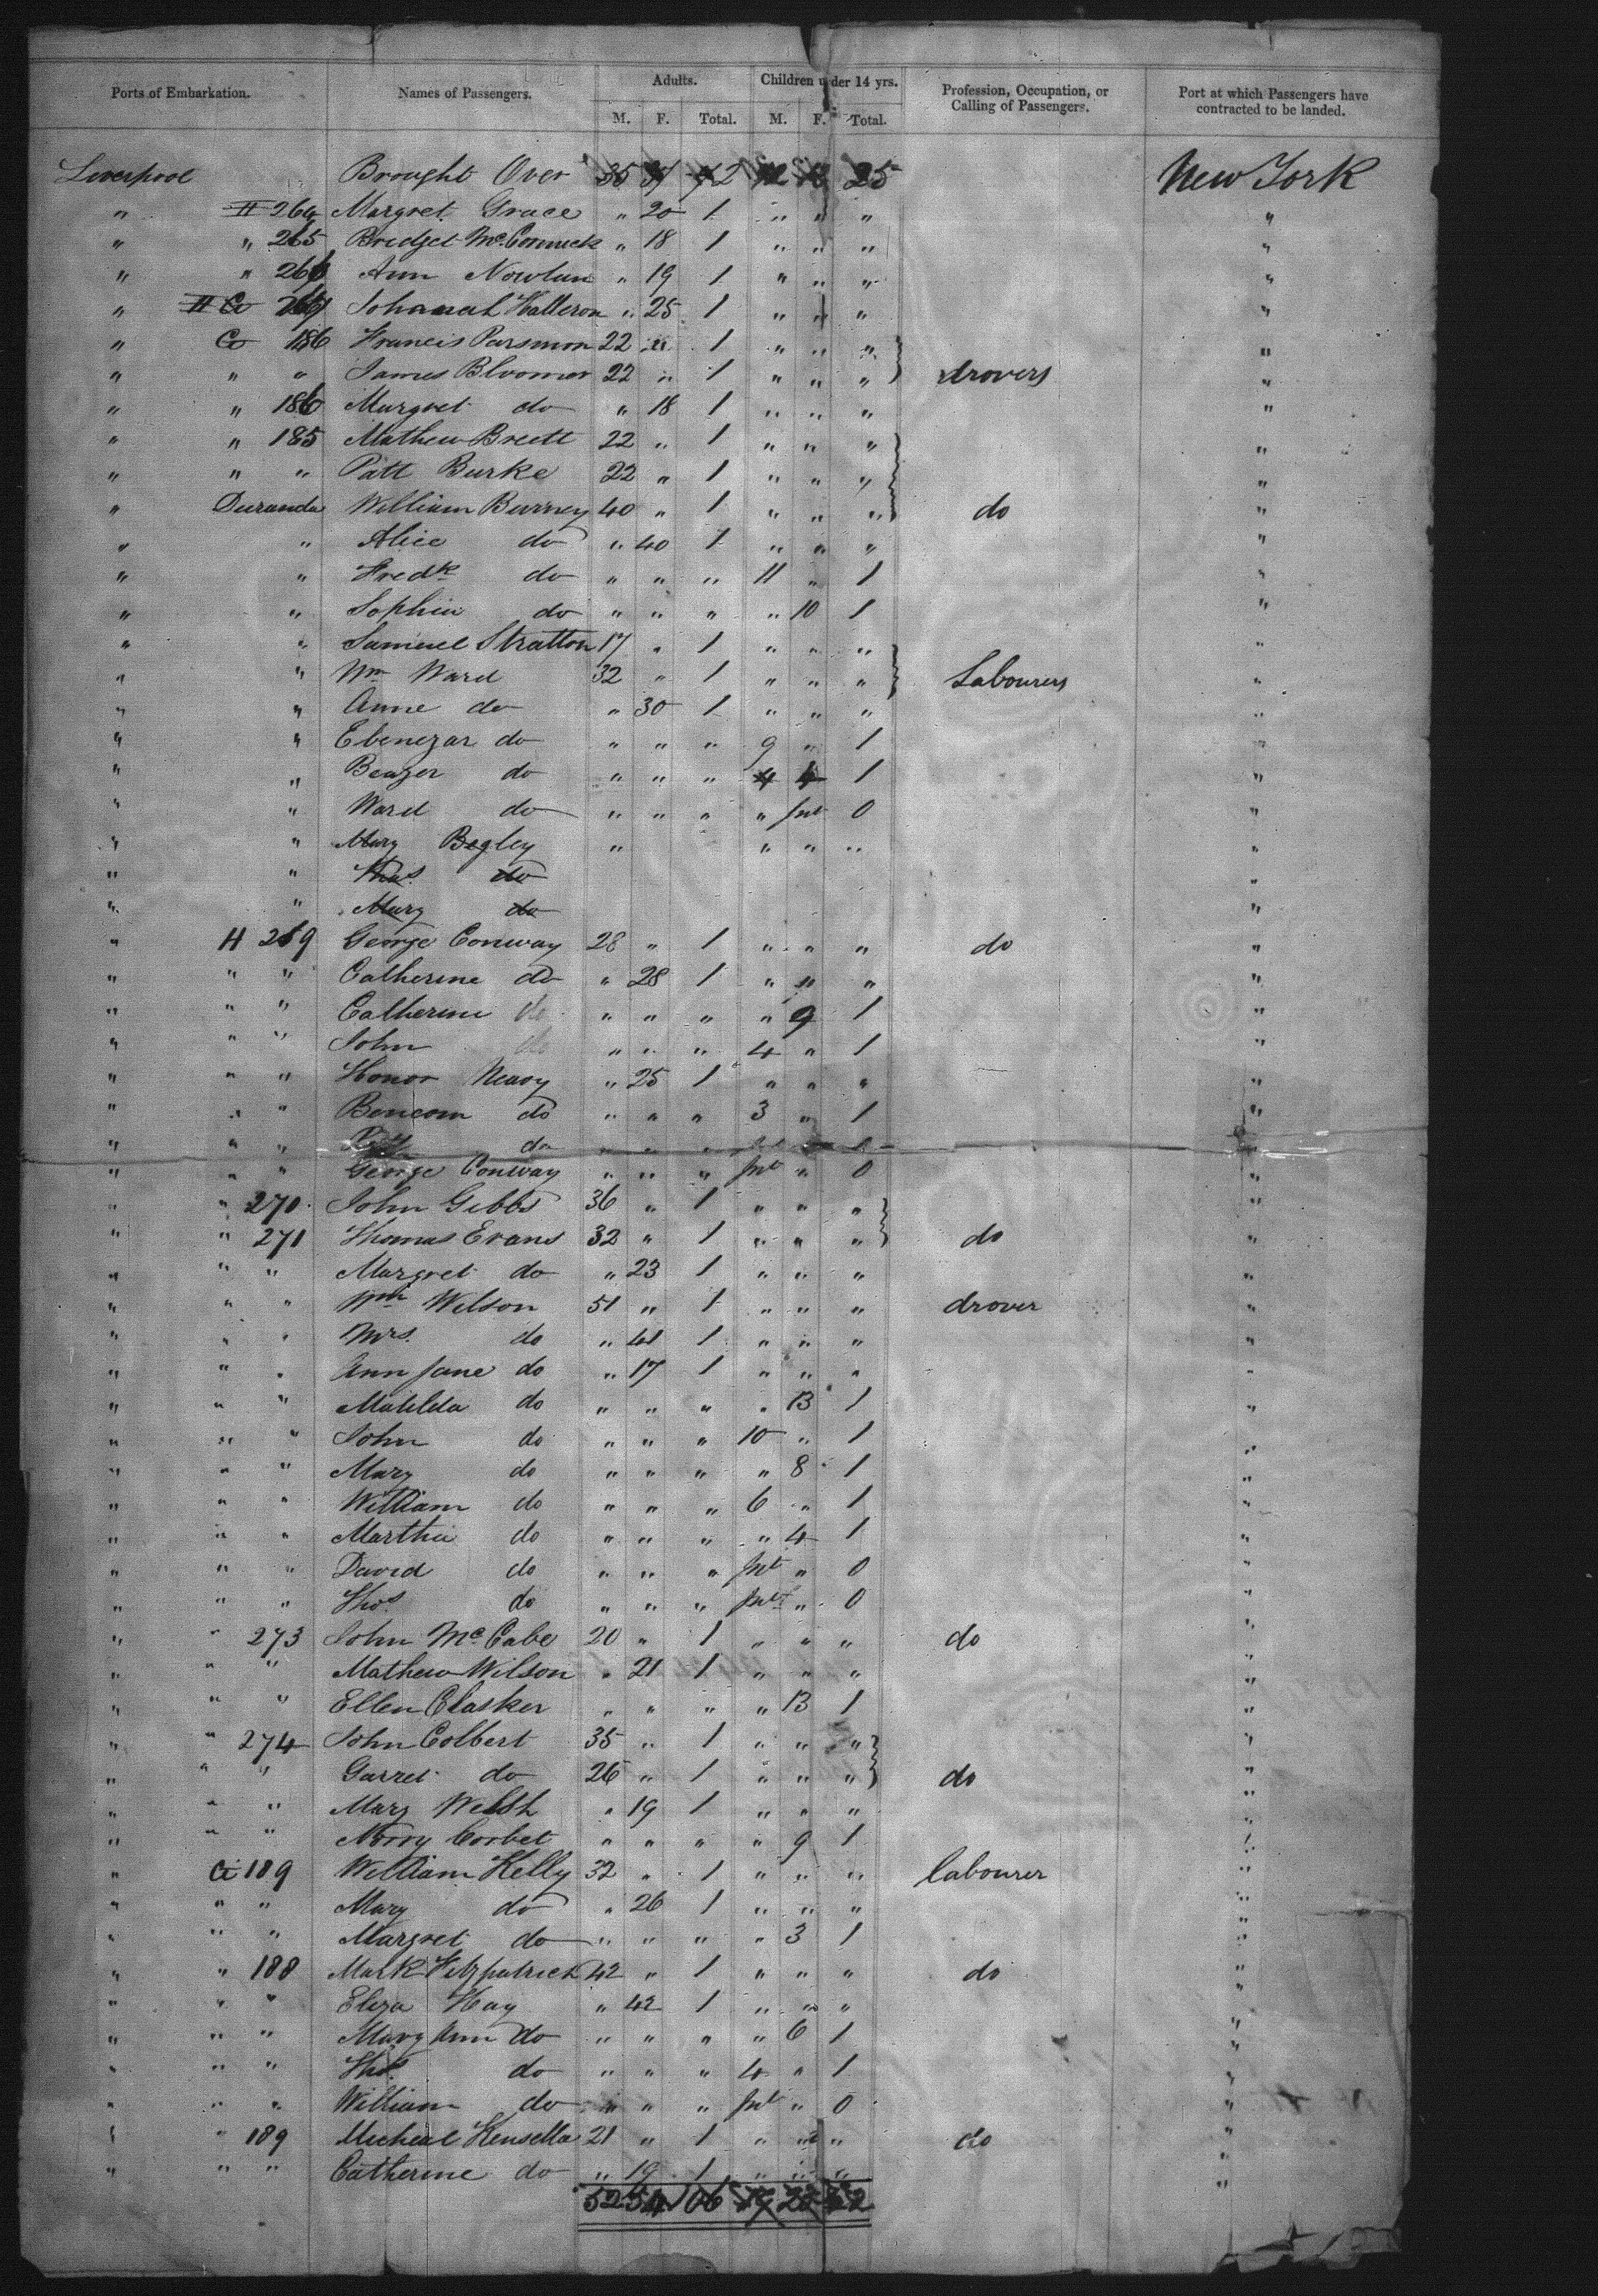 Ports of Embarkation. Names of Passengers. Adults. Children under 14 yrs. Profession, Occupation, or Calling of Passengers. Port at which Passengers have contracted to be landed.
M. F. Total. M. F. Total.
Liverpool Brought Over 35 72 25 New York
" H 264 Margret Grace " 20 1 " " " "
" " 265 Bridget McCormick " 18 1 " " " "
" " 266 Ann Nowlan " 19 1 " " " "
" Johanah Halleron " 25 1 " " " "
" G 186 Francis Parsmon 22 " 1 " " " "
" " " James Bloomer 22 " 1 " " " drovers "
" " 186 Margret do " 18 1 " " " "
" " 185 Mathew Brett 22 " 1 " " " "
" " " Patt Burke 22 " 1 " " " "
" Duranda William Burney 40 " 1 " " " do "
" " Alice do " 40 1 " " " "
" " Fredk do " " " 11 " 1 "
" " Sophia do " " " " 10 1 "
" " Samuel Stratton 17 " 1 " " " "
" " Wm Ward 32 " 1 " " " Labourers "
" " Anne do " 30 1 " " " "
" " Ebenezar do " " " 9 " 1 "
" " Beazer do " " " 4 4 1 "
" " Ward do " " " " Inft 0 "
" " Mary Begley " " " " "
" " Thos. do "
" " Mary do "
" H 269 George Conway 28 " 1 " " " do "
" " " Catherine do " 28 1 " " " "
" " " Catherine do " " " " 9 1 "
" " " John do " " " 4 " 1 "
" " " Honor Neavy " 25 1 " " " "
" " " Bencom do " " " 3 " 1 "
" " " do " " "
" " " George Conway " " " Inft " 0 "
" " 270 John Gibbs 36 " 1 " " " "
" " 271 Thomas Evans 32 " 1 " " " do "
" " " Margret do " 23 1 " " " "
" " " Wm Wilson 51 " 1 " " " drover "
" " " Mrs. do " 41 1 " " " "
" " " Ann Jane do " 17 1 " " " "
" " " Matilda do " " " " 13 1 "
" " " John do " " " 10 " 1 "
" " " Mary do " " " " 8 1 "
" " " William do " " " 6 " 1 "
" " " Martha do " " " " 4 1 "
" " " David do " " " Inft " 0 "
" " " Thos. do " " " Inft " 0 "
" " 273 John McCabe 20 " 1 " " " do "
" " " Mathew Wilson " 21 1 " " " "
" " " Ellen Clasker " " " " 13 1 "
" " 274 John Colbert 35 " 1 " " " "
" " " Garret do 26 " 1 " " " do "
" " " Mary Welsh " 19 1 " " " "
" " " Norry Corbet " " " " 9 1 "
" G 189 William Kelly 32 " 1 " " " labourer "
" " " Mary do " 26 1 " " " "
" " " Margret do " " " " 3 1 "
" " 188 Mark Fitzpatrick 42 " 1 " " " do "
" " " Eliza Hay " 42 1 " " " "
" " " Mary Ann do " " " " 6 1 "
" " " Thos. do " " " 4 " 1 "
" " " William do " " " Inft " 0 "
" " 189 Micheal Kensella 21 " 1 " " " do "
" " " Catherine do " 19 1 " " " "
52 54 106